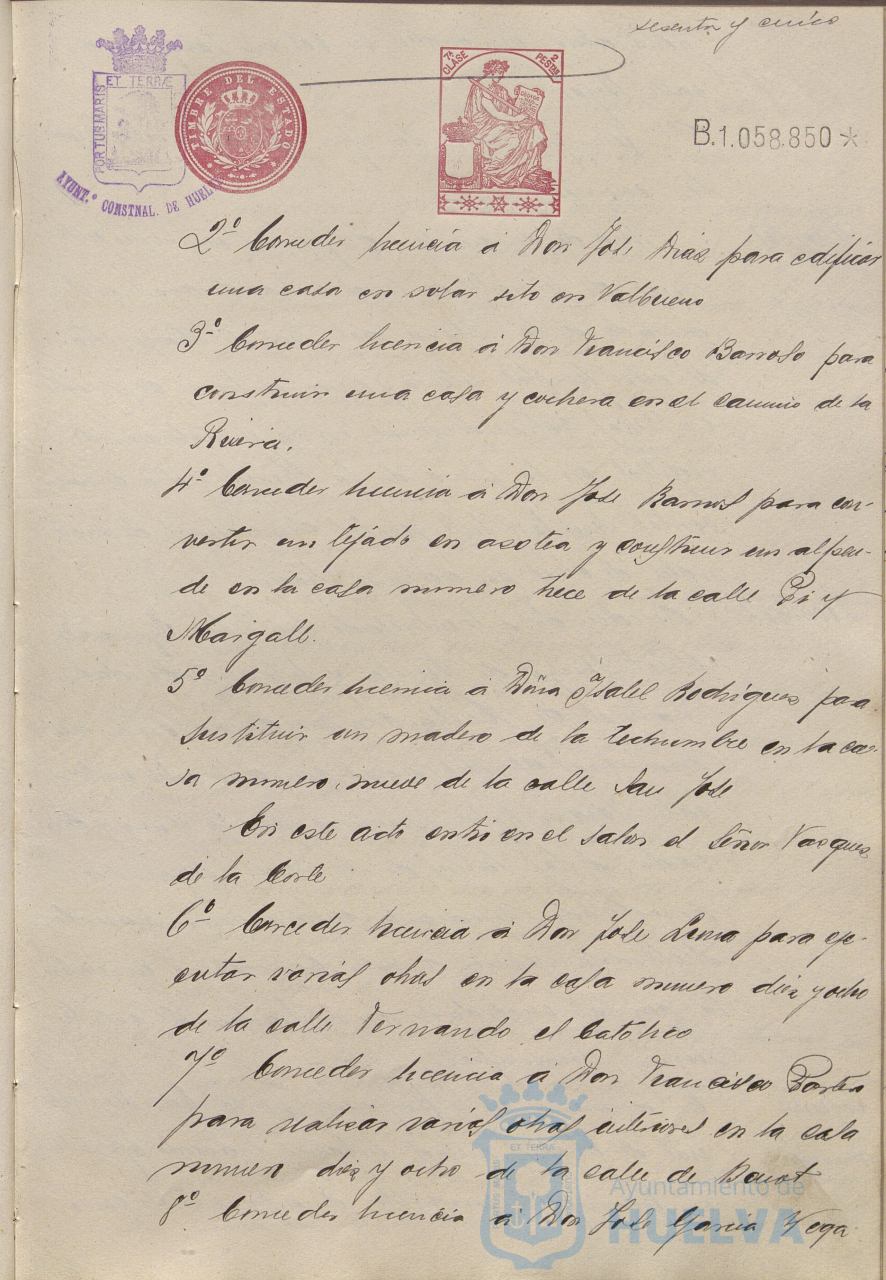 sesenta y cinco
PORTUS MARIS ET TERRÆ
AYUNT.º CONSTNAL. DE HUEL
TIMBRE DEL ESTADO
7ª CLASE 2 PESETAS
B.1.058.850 *
2º Conceder licencia á Don José Diaz para edificar
una casa en solar sito en Valbueno
3º Conceder licencia á Don Francisco Barroso para
construir una casa y cochera en el camino de la
Rivera.
4º Conceder licencia á Don José Barros para con-
vertir un tejado en azotea y construir un alpen-
de en la casa numero trece de la calle Pi y
Margall.
5º Conceder licencia á Doña Ysabel Rodrigues para
sustituir un madero de la techumbre en la ca-
sa numero nueve de la calle San José
En este acto entró en el salon el Señor Vazques
de la Corte
6º Conceder licencia á Don José Lima para eje-
cutar varias obras en la casa numero diez y ocho
de la calle Fernando el Católico
7º Conceder licencia á Don Francisco
para realizar varias obras interiores en la casa
numero diez y ocho de la calle de
8º Conceder licencia á Don José Garcia Vega
ET TERRA
Ayuntamiento de
HUELVA